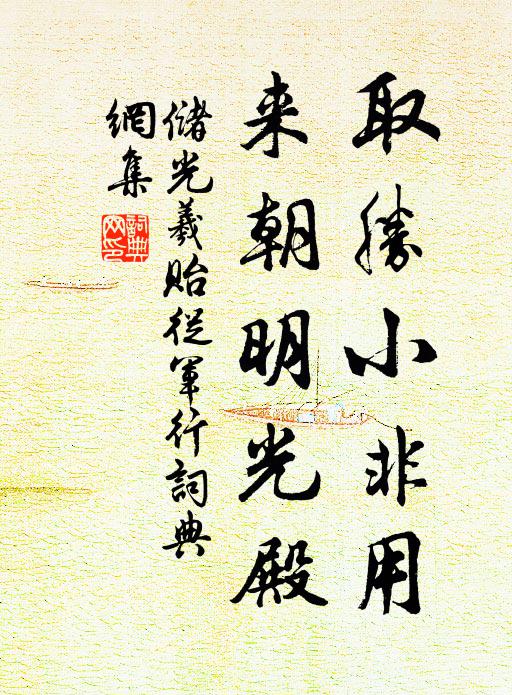 取勝小非用
来朝明光殿
儲光羲貽從軍行詞典
網集
詞典
网印